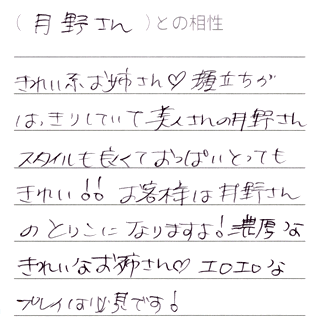 （月野さん）との相性
きれい系お姉さん♡顔立ちが
はっきりしていて美人さんの月野さん
スタイルも良くておっぱいとっても
きれい!! お客様は月野さん
のとりこになりますよ！濃厚な
きれいなお姉さん♡エロエロな
プレイは必見です！